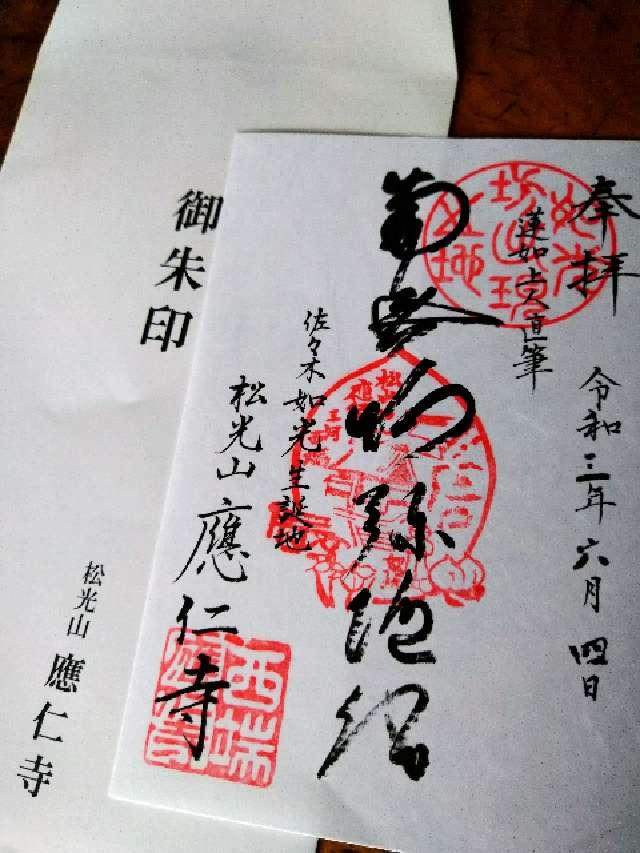 奉拝
令和三年六月四日
蓮如上人直筆
南无阿弥陀佛
佐々木如光生誕地
松光山 應仁寺
西端
御朱印
松光山 應仁寺